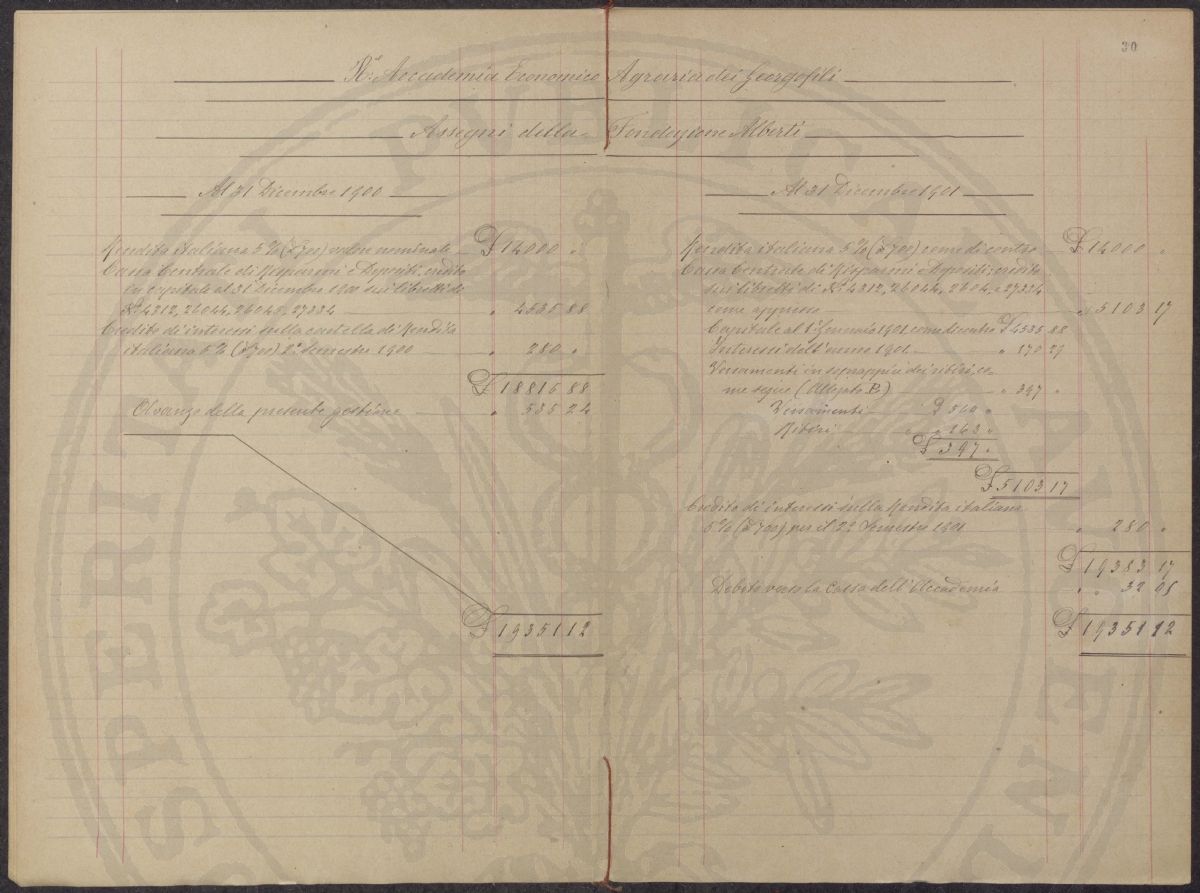 30
Rª. Accademia Economico Agraria dei Georgofili
Assegni della Fondazione Alberti
Al 31 Dicembre 1900
Rendita italiana 5% (£ 700) valore nominale £ 14000 "
Cassa Centrale di Risparmi e Depositi; credito
in capitale al 31 dicembre 1900 sui libretti di
Nⁱ 4212, 26044, 26045, 27334 " 4535 88
Credito di interessi sulla cartella di Rendita
italiana 5% (£ 700) 2° Semestre 1900 " 280 "
£ 18815 88
Avanzo della presente gestione " 535 24
£ 19351 12
Al 31 Dicembre 1901
Rendita italiana 5% (£ 700) come di contro £ 14000 "
Cassa Centrale di Risparmi e Depositi; credito
sui libretti di Nⁱ 4212, 26044, 2604 e 27334
come appresso " 5103 17
Capitale al 1° Gennaio 1901 come dicontro £ 4535 88
Interessi dell'anno 1901 " 170 29
Versamenti in soprappiù dei ritiri, co-
me segue (Allegato B.) " 397 "
Versamenti £ 560 "
Ritiri " 163 "
£ 397 "
£ 5103 17
Credito di interessi sulla Rendita italiana
5% (£ 700) per il 2° Semestre 1901 " 280 "
£ 19383 17
Debito verso la Cassa dell'Accademia " 32 05
£ 19351 12
SPERI
PVBLICA